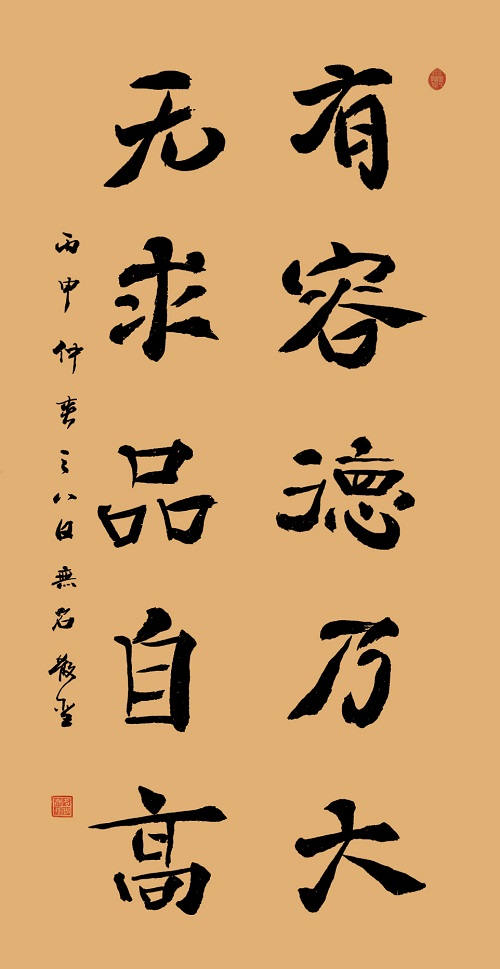 有容德乃大
无求品自高
丙申仲黄之八日無名散